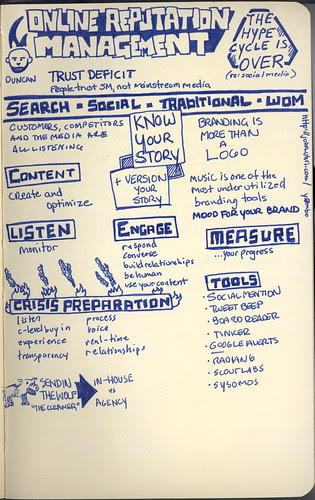 ONLINE REPUTATION
MANAGEMENT
DUNCAN
THE
HYPE
CYCLE IS
OVER
(re: social media)
TRUST DEFICIT
People trust SM, not mainstream media
SEARCH - SOCIAL - TRADITIONAL - WOM
CUSTOMERS, COMPETITORS
AND THE MEDIA ARE
ALL LISTENING
KNOW
YOUR
STORY
+ VERSION
YOUR
STORY
BRANDING IS
MORE THAN
A
LOGO
CONTENT
create and
optimize
Music is one of the
most under utilized
branding tools
MOOD FOR YOUR BRAND
LISTEN
monitor
ENGAGE
respond
converse
build relationships
be human
use your content
MEASURE
...your progress
CRISIS PREPARATION
listen
c-level buy in
experience
transparency
process
voice
real-time
relationships
TOOLS
• SOCIAL MENTION
• TWEET BEEP
• BOARD READER
• TINKER
• GOOGLE ALERTS
• RADIAN6
• SCOUT LABS
• SYSOMOS
SEND IN
THE WOLF
"THE CLEANER"
IN-HOUSE
vs
AGENCY